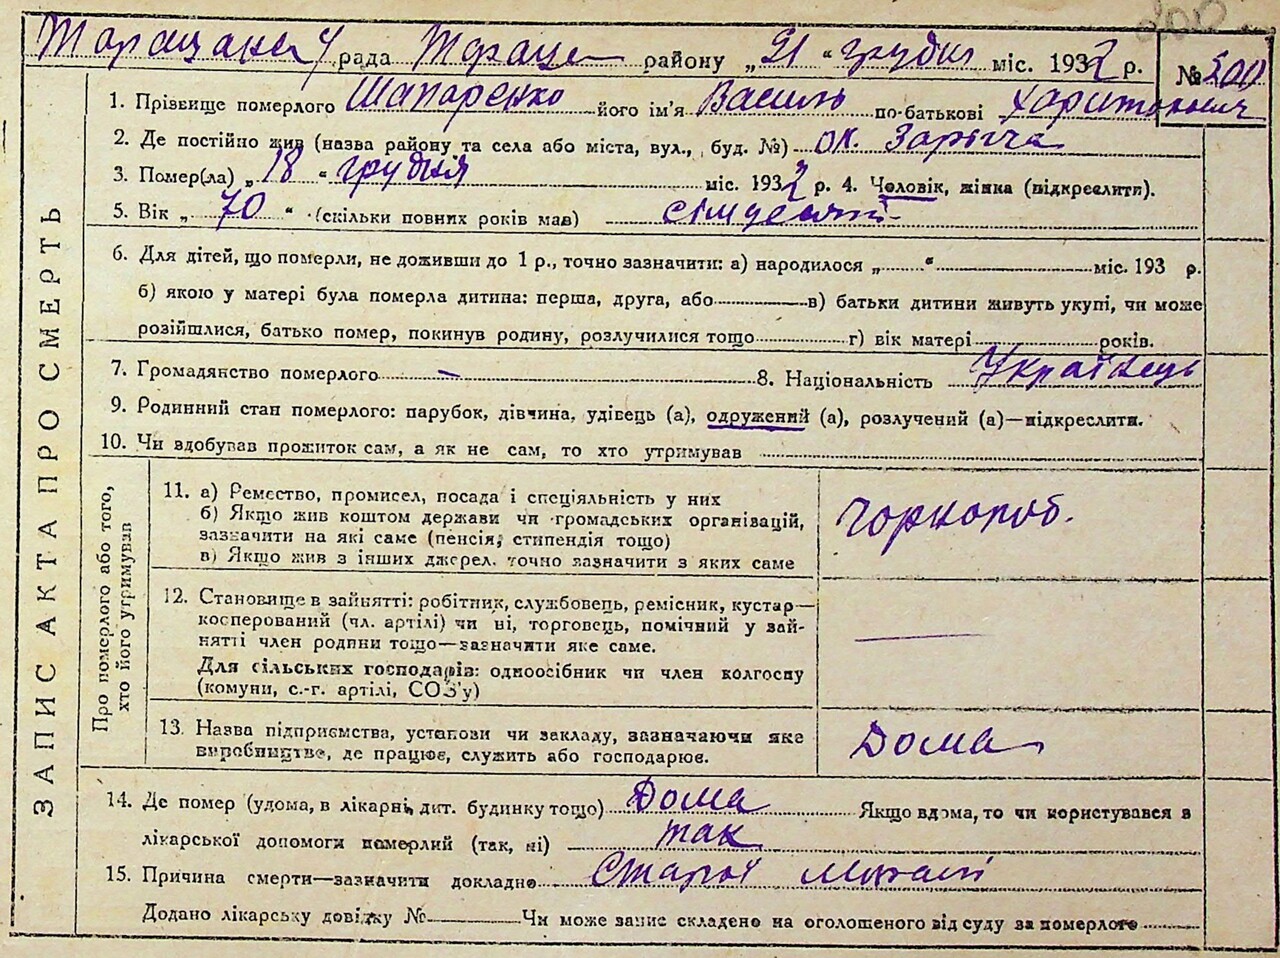 рада району „21" грудня міс. 1932 р. № 500
1. Прізвище померлого Шапаренко його ім'я Василь по-батькові Харитонович
2. Де постійно жив (назва району та села або міста, вул., буд. №) ок. Заричча
3. Помер(ла) „18" грудня міс. 1932 р. 4. Чоловік, жінка (підкреслити).
5. Вік „70" (скільки повних років мав) сімдесят
6. Для дітей, що померли, не доживши до 1 р., точно зазначити: а) народилося „ " міс. 193 р.
б) якою у матері була померла дитина: перша, друга, або в) батьки дитини живуть укупі, чи може
розійшлися, батько помер, покинув родину, розлучилися тощо г) вік матері років.
7. Громадянство померлого — 8. Національність Українець
9. Родинний стан померлого: парубок, дівчина, удівець (а), одружений (а), розлучений (а)—підкреслити.
10. Чи вдобував прожиток сам, а як не сам, то хто утримував
ЗАПИС АКТА ПРО СМЕРТЬ
Про померлого або того,
хто його утримував
11. а) Ремество, промисел, посада і спеціяльність у них
б) Якщо жив коштом держави чи громадських організацій,
зазначити на які саме (пенсія, стипендія тощо)
в) Якщо жив з інших джерел. точно зазначити з яких саме
чорнороб.
12. Становище в зайнятті: робітник, службовець, ремісник, кустар—
косперований (чл. артілі) чи ні, торговець, помічний у зай-
нятті член родини тощо—зазначити яке саме.
Для сільських господарів: одноосібник чи член колгоспу
(комуни, с.-г. артілі, СОЗ'у)
—
13. Назва підприємства, установи чи закладу, зазначаючи яке
виробництво, де працює, служить або господарює.
Дома
14. Де помер (удома, в лікарні, дит. будинку тощо) Дома Якщо вдома, то чи користувався з
лікарської допомоги померлий (так, ні) так
15. Причина смерти—зазначити докладно Старої
Додано лікарську довідку № Чи може запис складено на оголошеного від суду за померлого